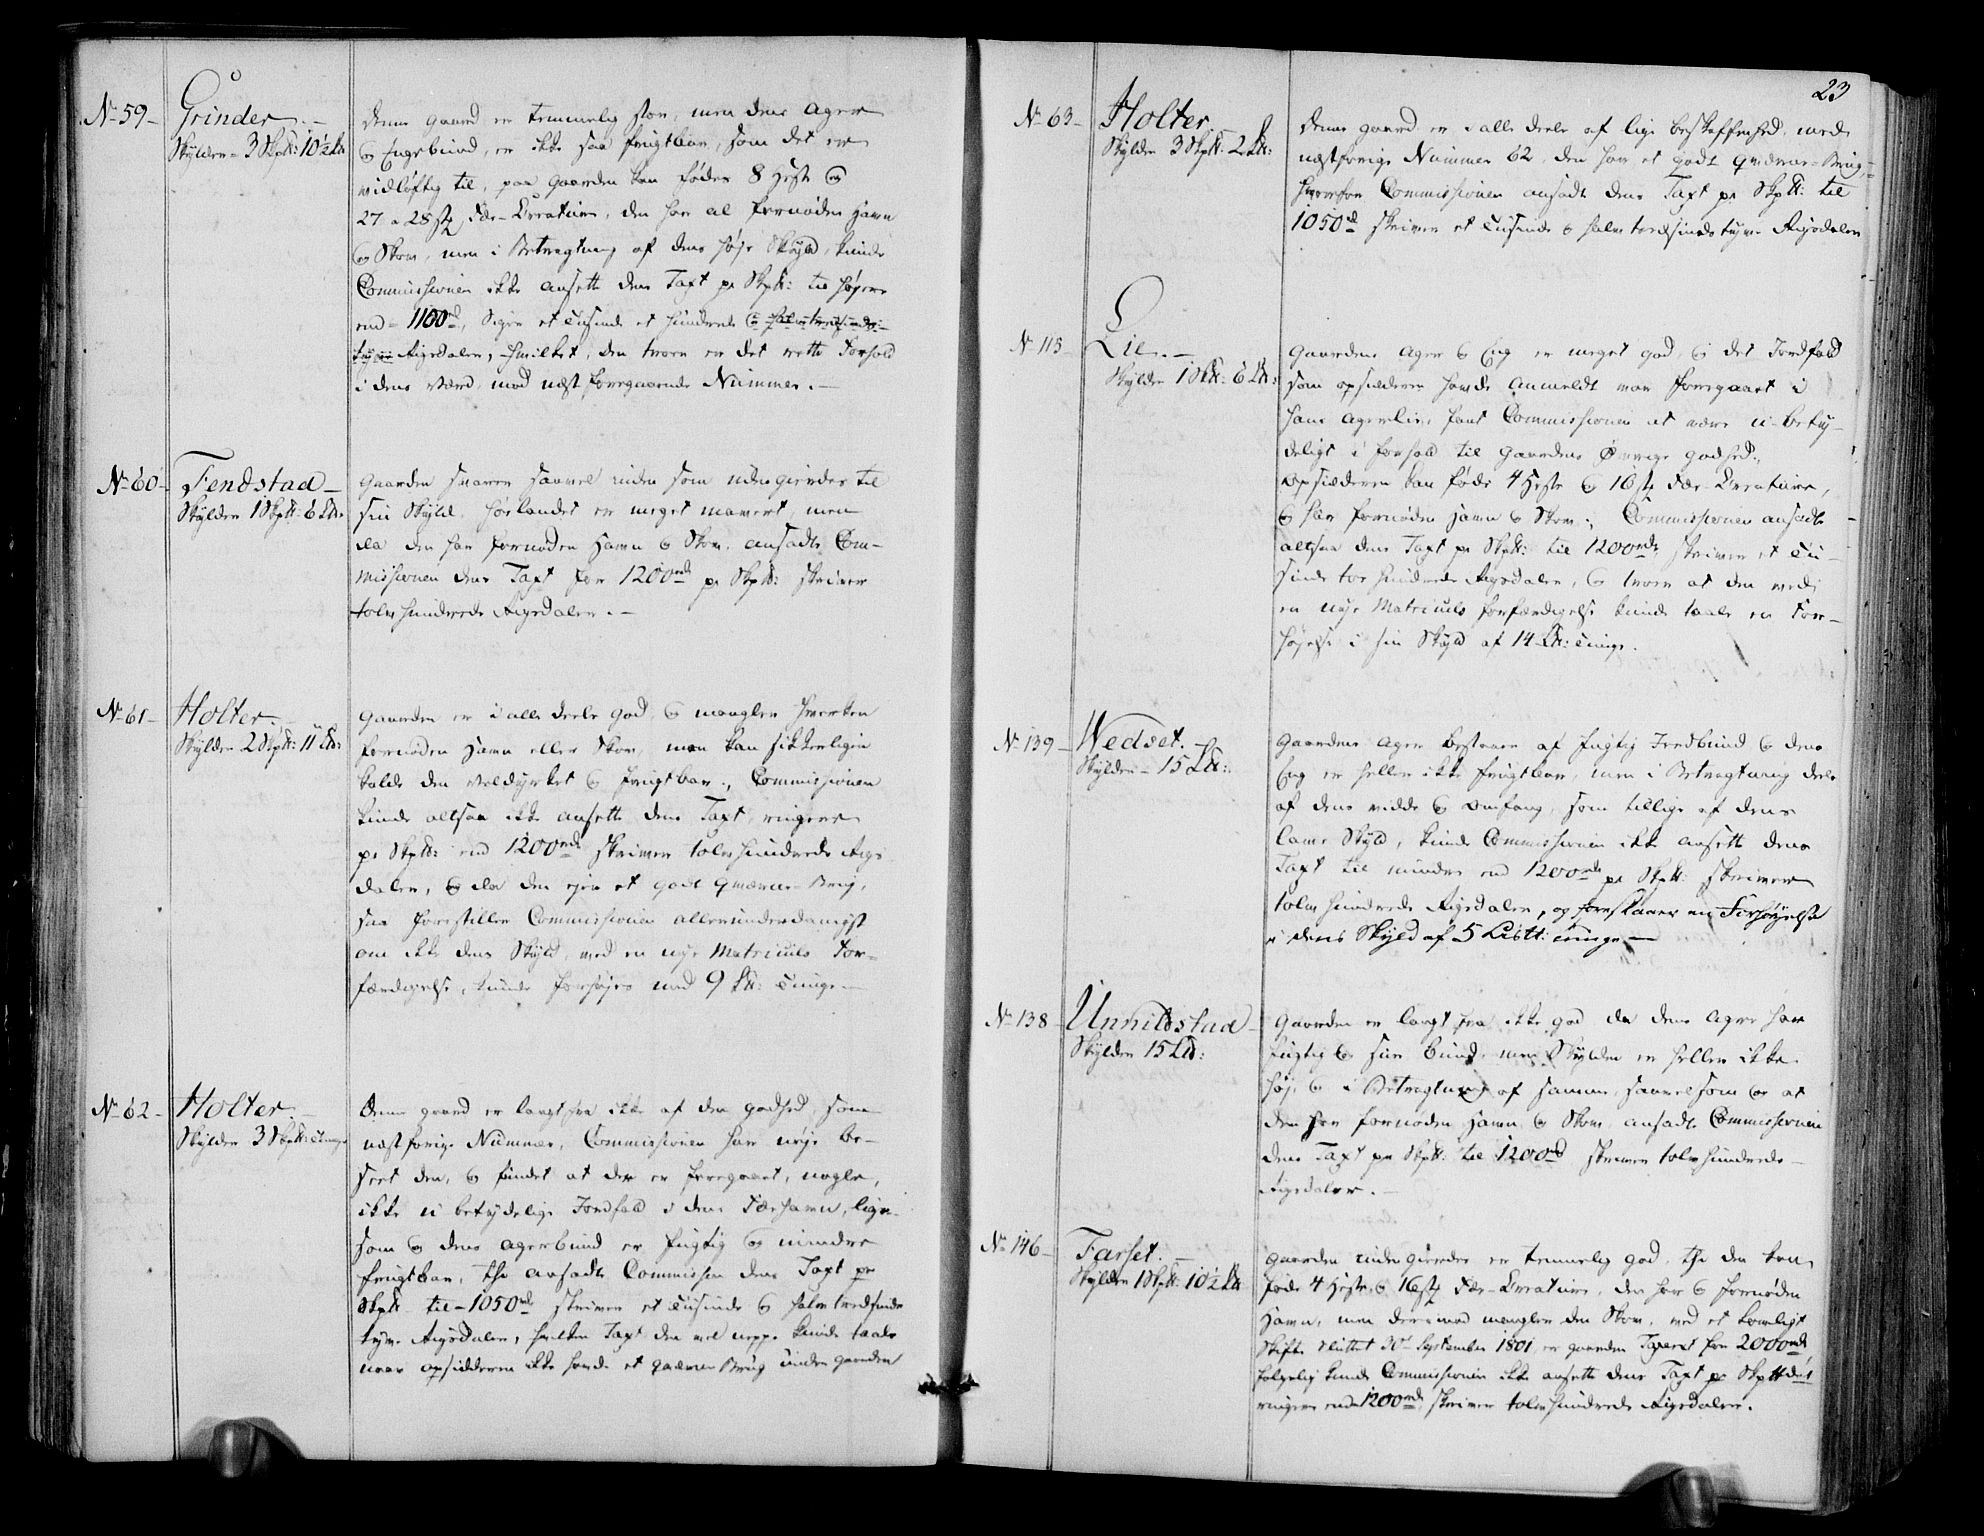 No 59 –
Grinder. –
Skylder – 3 Skp𝔱: 10½ L𝔱
denne gaard er temmelig stor, men dens ager
og Engebund, er ikke saa frugtbar, som det er
vidløftig til, paa gaarden kan føedes 8 Heste og
27 a 28 st. Fæe-Creature, den har al fornøden Havn
og Skov, men i Betragtning af dens høje Skyld, kunde
Commissionen ikke ansætte dens Taxt pr Skp𝔱: til højere
end – 1100rd, siger et Tusinde et Hundrede og halvtredsinds-
tyve Rigsdaler, hvilket, den troer er det rette Forhold
i dens Værd, mod næst foregaaende Nummer. –
No 60 –
Fendstad –
Skylder 1 Skp𝔱: 6 L𝔱:
Gaarden svarer saavel inden som uden gierdes til
sin Skyld. Hørlandet er meget mavert, men
da den har fornøden Havn og Skov, ansadte Com-
missionen dens Taxt for 1200rd pr Skp𝔱: skriver
tolv Hundrede Rigsdaler. –
No 61 –
Holter. –
Skylder 2 Skp𝔱: 11 L𝔱:
Gaarden er i alle deele god, og mangler hverken
fornøden Havn eller Skov, man kan sikkerligen
kalde den veldyrket og frugtbar, Commissionen
kunde altsaa ikke ansætte dens Taxt, ringere
pr Skp𝔱: end 1200rd skriver tolv Hundrede Rigs
daler, og da den ejer et godt Qværne-Brug,
saa forestiller Commissionen allerunderdanigst
om ikke dens Skyld, ved en nye Matriculs For-
færdigelse, kunde forhøjes med 9 L𝔱: Tunge. –
No 62 –
Holter. –
Skylder 3 Skp𝔱: Tunge
Denne gaard er langt fra ikke af den godhed, som
næstforrige Nummer, Commissionen har nøje be-
seet den, og fundet at der er foregaaet, nogle,
ikke u betydelige Jordfald i dens Fæehavn, lige-
som og dens agerbund er fugtig og mindre
frugtbar, thi ansadte Commissionen dens Taxt pr
Skp𝔱 til – 1050rd skriver et Tusinde og halvtredsinds
tyve Rigsdaler, hvilken Taxt den vel neppe kunde taale
naar opsidderen ikke havde et Qværne Brug under gaarden
23
No 63 –
Holter
Skylder 3 Skp𝔱. 2 L𝔱:
denne gaard er i alle deele af lige beskaffenhed, med
næstforrige Nummer 62, den har et godt Qværne-Brug,
hvorfor Commissionen ansadte dens Taxt pr Skp𝔱: til
1050rd skriver et Tusinde og halvtredsindstyve Rigsdaler
No 115 –
Lie. –
Skylder 1 Sk𝔱: 6 L𝔱:
Gaardens ager og Eng er meget god, og det Jordfald
som opsidderen havde anmeldt var foregaaet i
hans agerlie, fant Commissionen at være u-bety-
deligt i forhold til gaardens Øvrige godhed,
opsidderen kan føde 4 Heste og 16 st Fæe-Creature,
og har fornøden Havn og Skov, Commissionen ansadte
altsaa dens Taxt pr Skp𝔱: til 1200rd skriver et Tu-
sinde too Hundrede Rigsdaler, og troer at den ved
en nye Matriculs forfærdigelse kunde taale en For-
højelse i sin Skyld af 14 L𝔱: Tunge.
No 139 –
Wedset. –
Skylder – 15 L𝔱:
Gaardens ager bestaaer af fugtig Jordbund og dens
Eng er heller ikke frugtbar, men i Betragtning deels
af dens vidde og Omfang, som tillige af dens
lave Skyld, kunde Commissionen ikke ansætte dens
Taxt til mindre end 1200rd pr Skp𝔱: skriver
tolv Hundrede Rigsdaler, og foreslaaer en Forhøyelse
i dens Skyld af 5 Lis℔: Tunge –
No 138 –
Unnildstad –
Skylder 15 L𝔱:
Gaarden er langt fra ikke god da dens agre har
fugtig og suur bund, men Skylden er heller ikke
høj, og i Betragtning af samme, saavelsom og at
den har fornøden Havn og Skov, ansadte Commissionen
dens Taxt pr Skp𝔱: til 1200rd skriver tolv Hundrede
Rigsdaler. –
No 146 –
Farset. –
Skylder 1 Skp𝔱: 10½ L𝔱
Gaarden inden gierdes er temmelig god, thi den kan
føde 4 Heste og 16 st Fæe-Creature, den har og fornøden
Havn, men derimod mangler den Skov, ved et lovligt
Skifte sluttet 30te September 1801, er gaarden Taxeret for 2000rd
følgelig kunde Commissionen ikke ansætte dens Taxt pr Skp𝔱 des
ringere end 1200rd, skriver tolv Hundrede Rigsdaler.